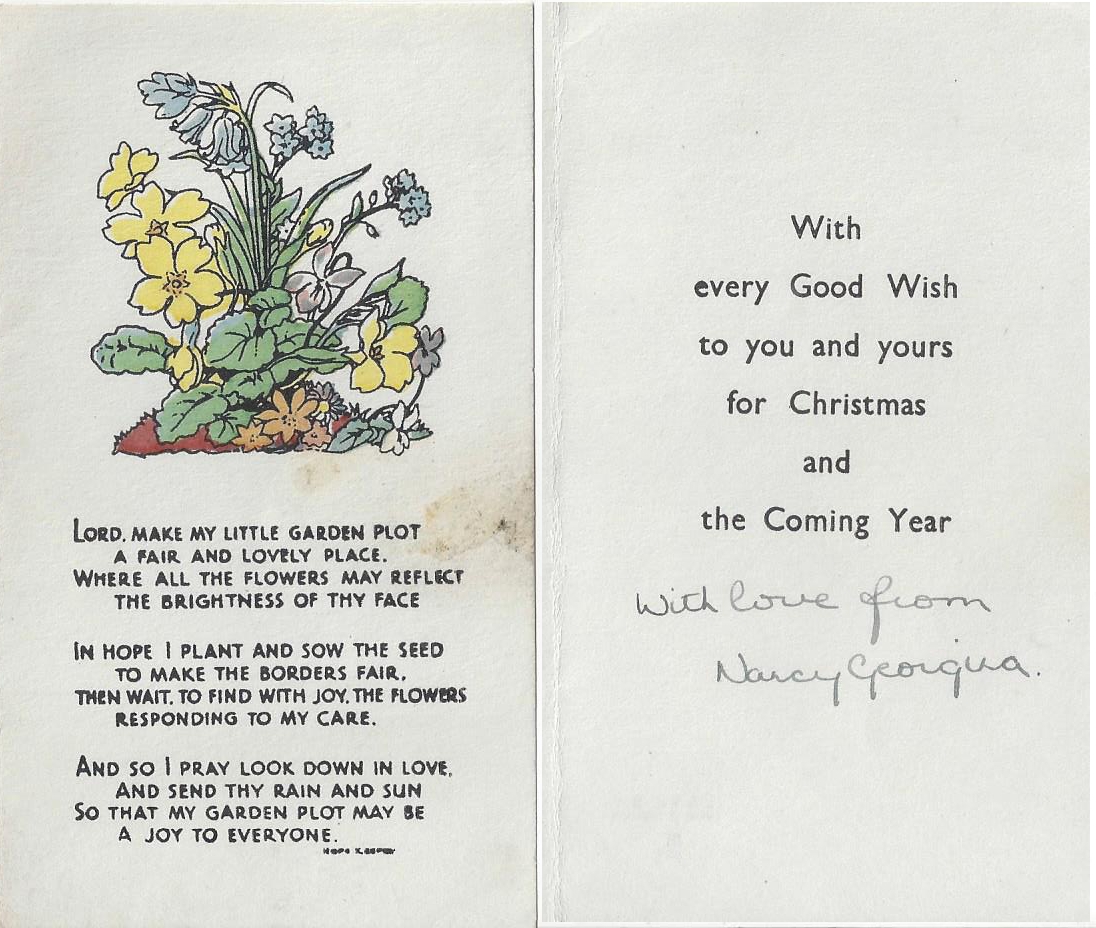 LORD, MAKE MY LITTLE GARDEN PLOT
A FAIR AND LOVELY PLACE.
WHERE ALL THE FLOWERS MAY REFLECT
THE BRIGHTNESS OF THY FACE
IN HOPE I PLANT AND SOW THE SEED
TO MAKE THE BORDERS FAIR,
THEN WAIT, TO FIND WITH JOY, THE FLOWERS
RESPONDING TO MY CARE.
AND SO I PRAY LOOK DOWN IN LOVE,
AND SEND THY RAIN AND SUN
SO THAT MY GARDEN PLOT MAY BE
A JOY TO EVERYONE.
With
every Good Wish
to you and yours
for Christmas
and
the Coming Year
With love from
Nancy Georgina.